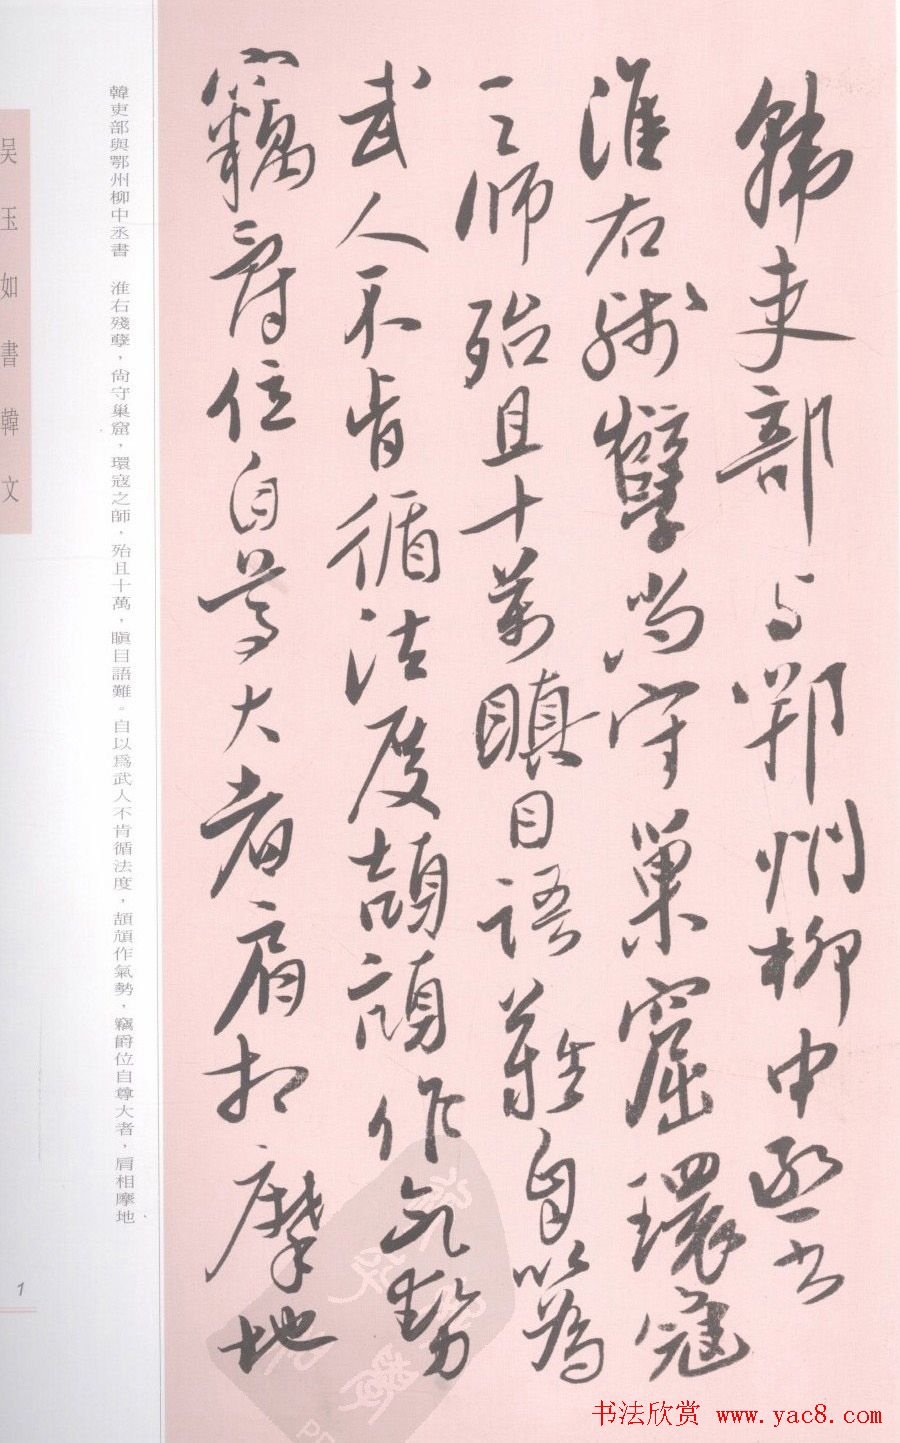 韓吏部與鄂州柳中丞書
淮右殘孽尚守巢窟環寇
之師殆且十萬瞋目語難自以為
武人不肯循法度頡頏作氣勢
竊爵位自尊大者肩相摩地
韓吏部與鄂州柳中丞書　淮右殘孽，尙守巢窟，環寇之師，殆且十萬，瞋目語難。自以爲武人不肯循法度，頡頏作氣勢，竊爵位自尊大者，肩相摩地
吴玉如書韓文
1
书法欣赏 www.yac8.com